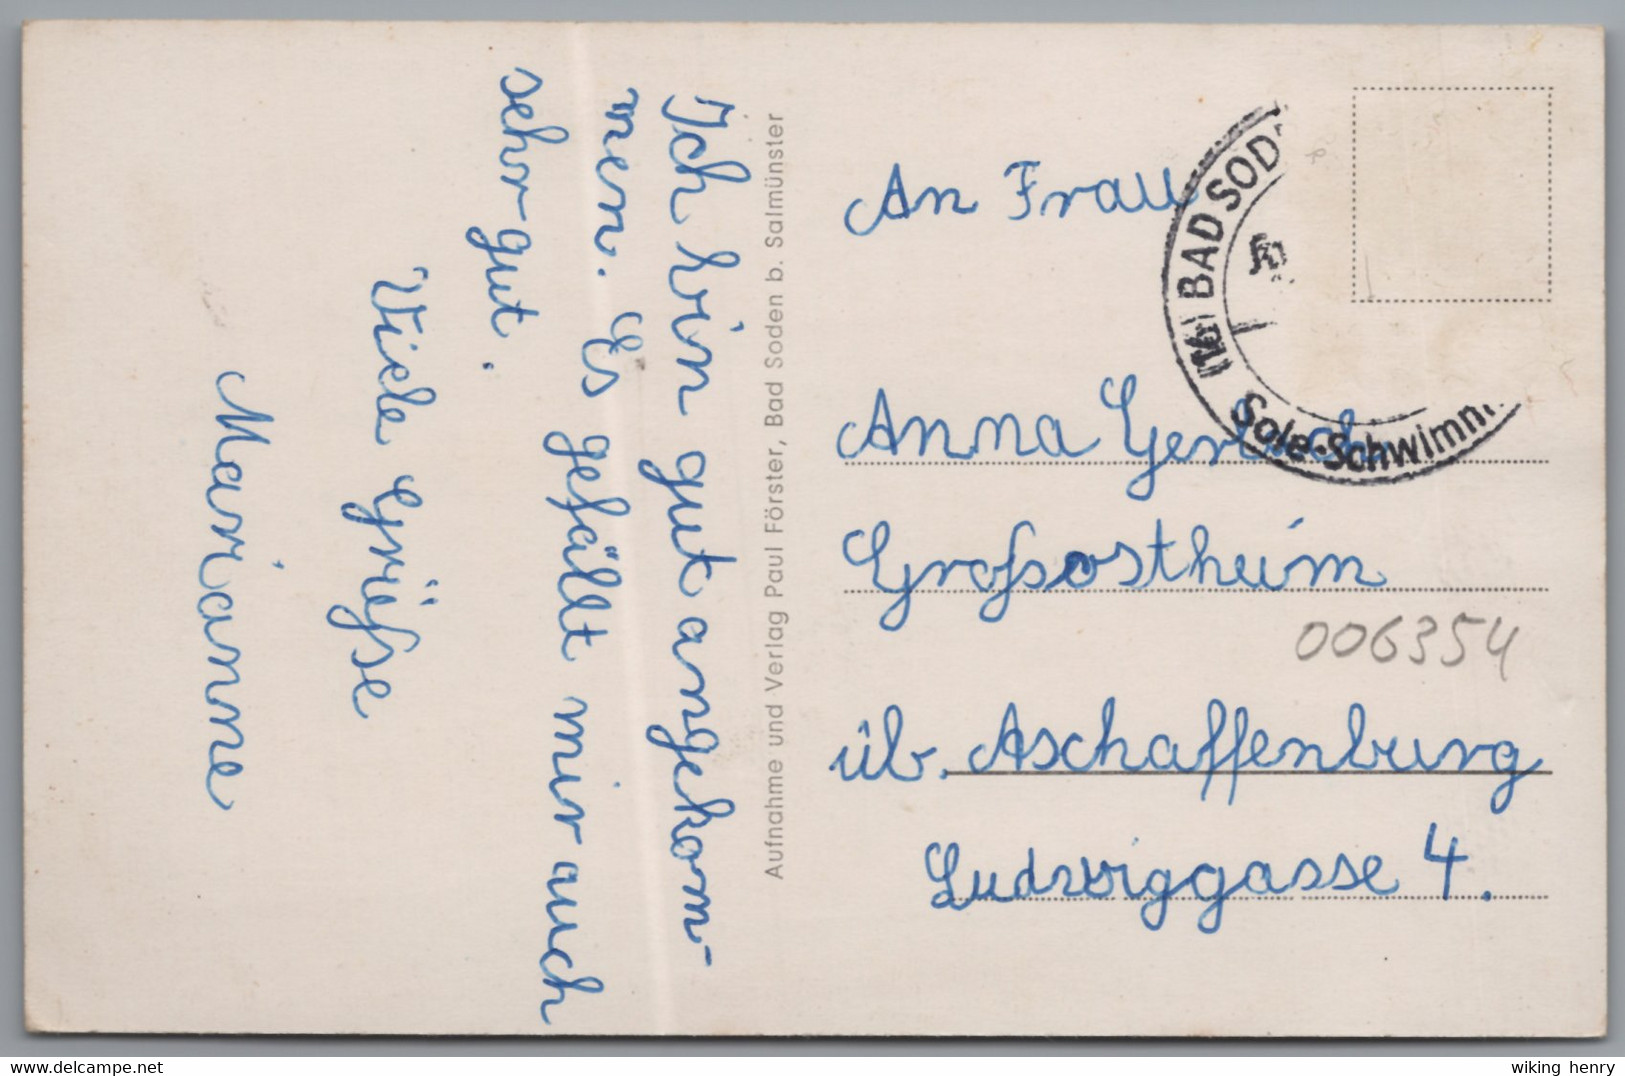 Ich bin gut angekom-
men. Es gefällt mir auch
sehr gut.
Viele Grüße
Marianne
Aufnahme und Verlag Paul Förster, Bad Soden b. Salmünster
An Frau
Anna Gerlach
Großostheim
üb. Aschaffenburg
Ludwiggasse 4.
BAD SOD
Sole-Schwimm
006354
delcampe.net
wiking henry